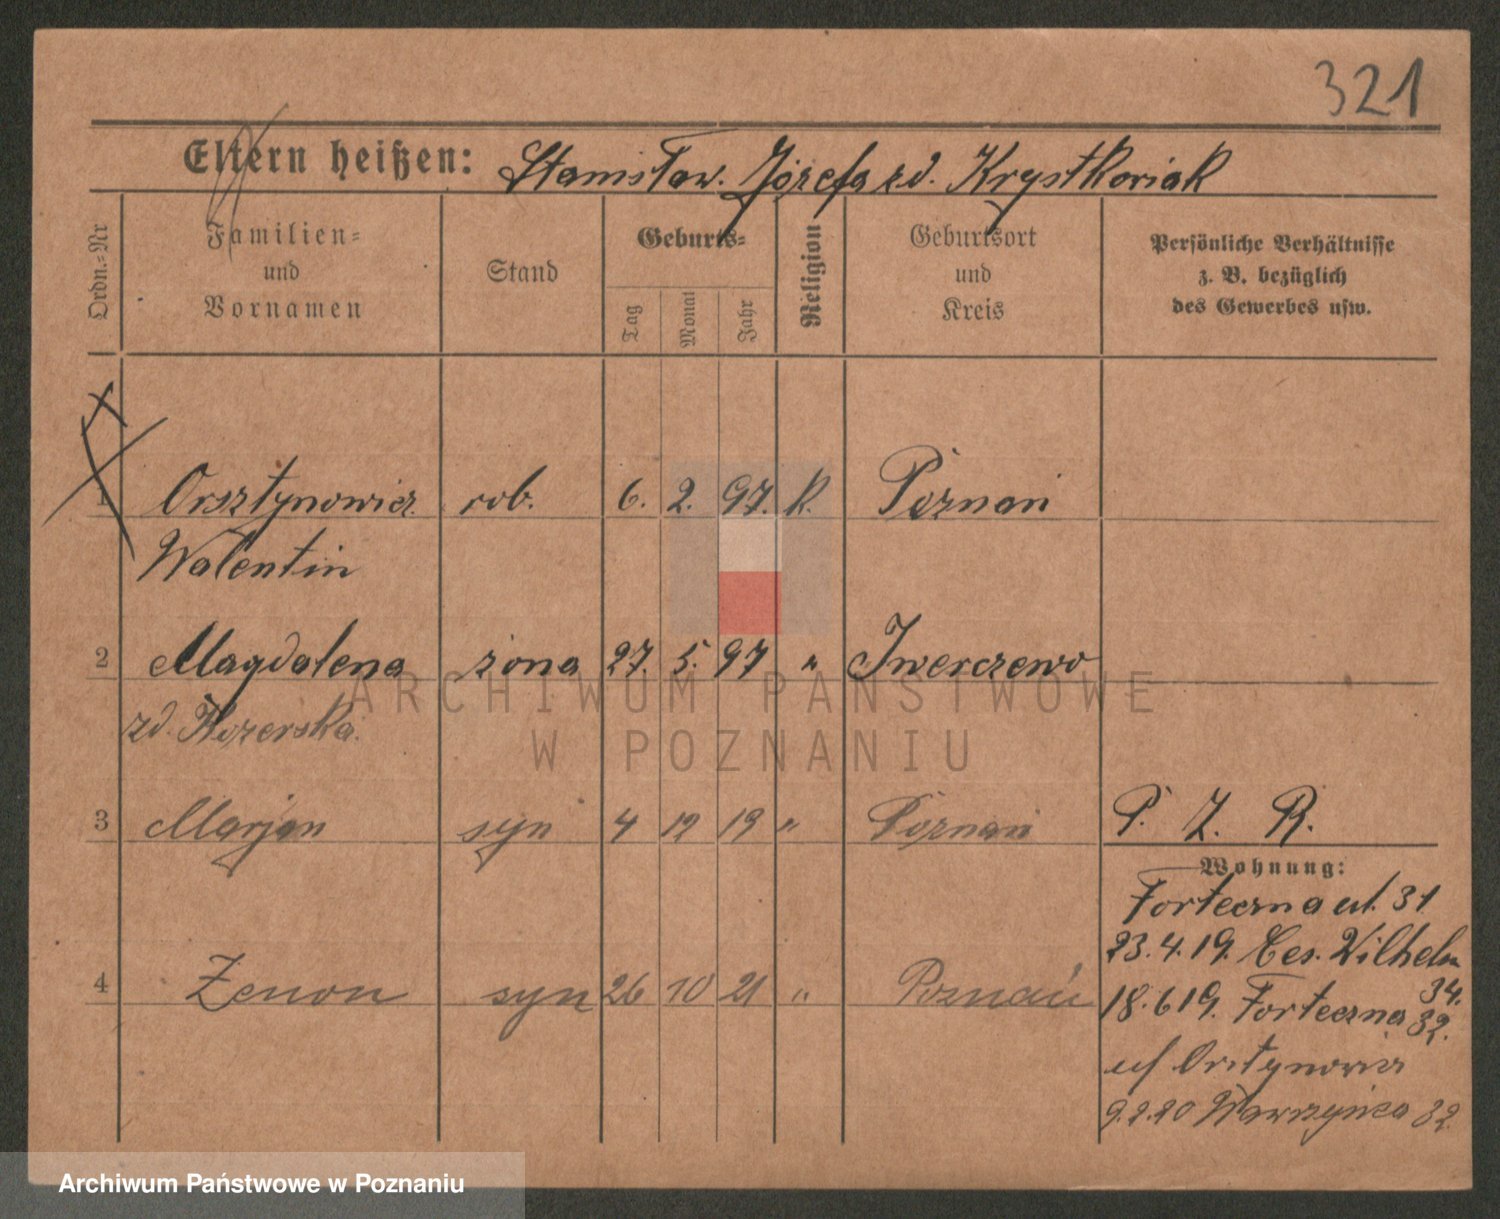 321
Eltern heißen: Stanisław. Józefa zd. Krystkowiak
Ordn.-Nr
Familien-
und
Vornamen
Stand
Geburts-
Tag
Monat
Jahr
Religion
Geburtsort
und
Kreis
Persönliche Verhältnisse
z. B. bezüglich
des Gewerbes usw.
1 Orsztynowicz rob. 6. 2. 97. K. Poznań
Walentin
2 Magdalena żona 27. 5. 97 " Iwerczewo
zd.
3 Marjan syn 4 12 19 " Poznań
P. Z. R.
Wohnung:
Forteczna ul. 31
23.4.19. Ces. Wilhelm 34.
18.6 19. Forteczna 32.
4 Zenon syn 26 10 21 " Poznań
u/ Orsztynowicz
9.2.20 Wawrzyńca 32.
ARCHIWUM PAŃSTWOWE
W POZNANIU
Archiwum Państwowe w Poznaniu